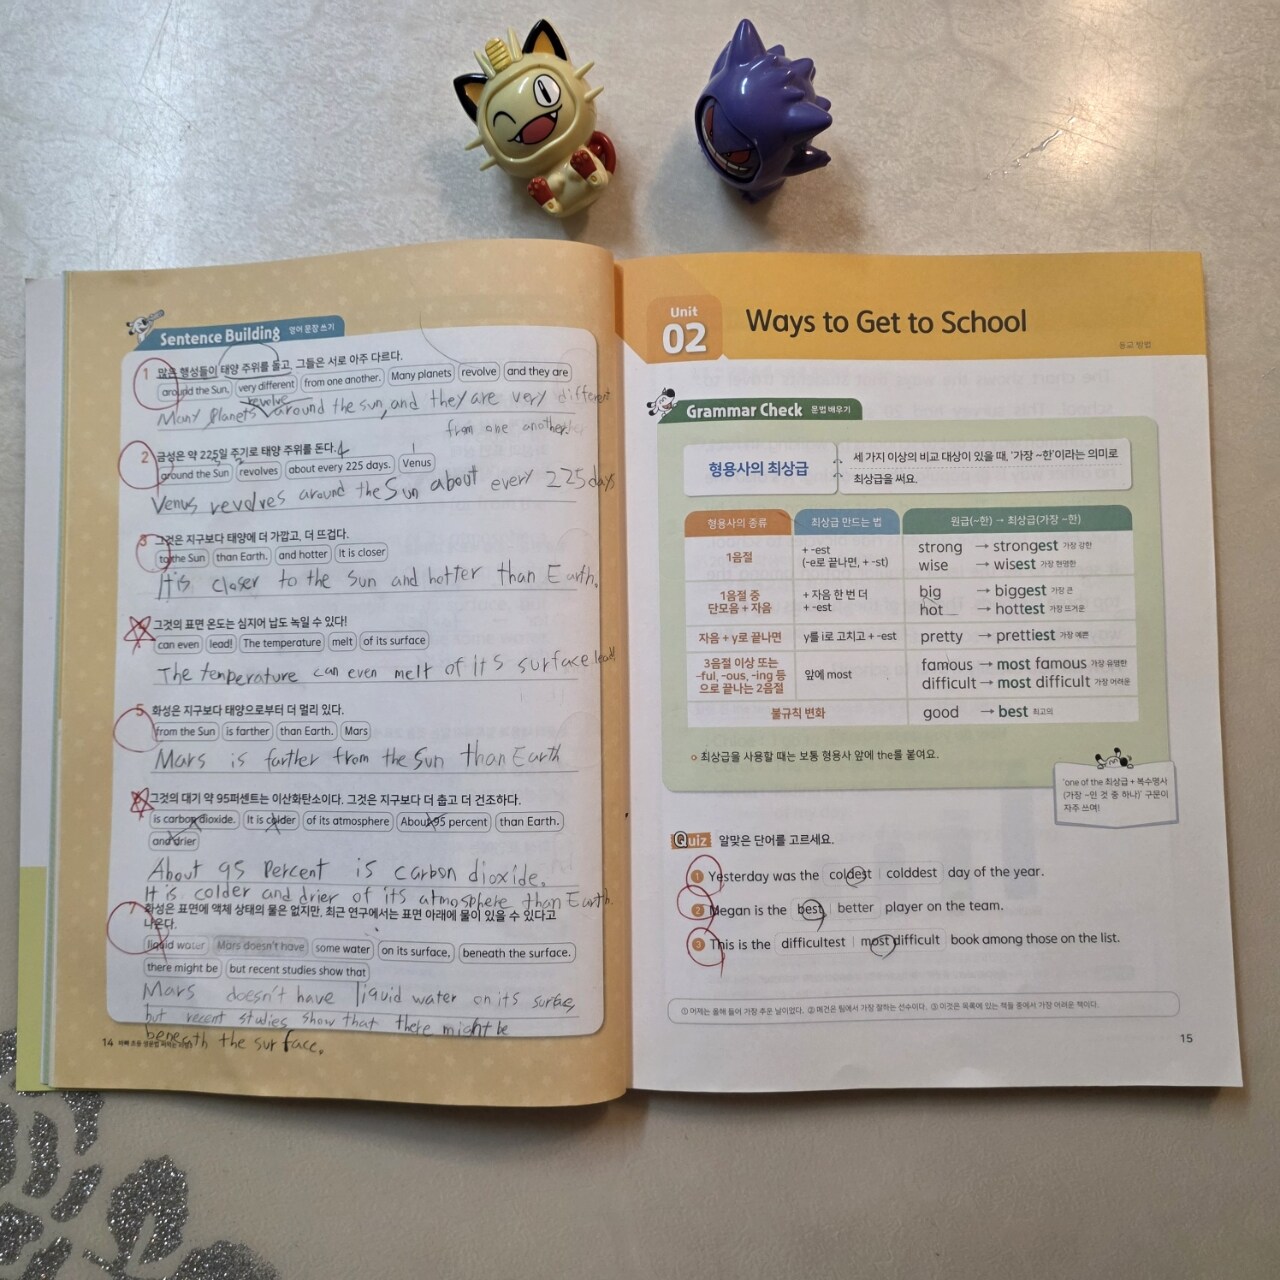 Sentence Building 영어 문장 쓰기
1 많은 행성들이 태양 주위를 돌고, 그들은 서로 아주 다르다.
around the Sun, very different from one another. Many planets revolve and they are
revolve
Many planets around the sun, and they are very different
from one another.
2 금성은 약 225일 주기로 태양 주위를 돈다.
around the Sun revolves about every 225 days. Venus
Venus revolves around the Sun about every 225 days
3 그것은 지구보다 태양에 더 가깝고, 더 뜨겁다.
to the Sun than Earth. and hotter It is closer
It is closer to the Sun and hotter than Earth.
그것의 표면 온도는 심지어 납도 녹일 수 있다!
can even lead! The temperature melt of its surface
The temperature can even melt of its surface lead
5 화성은 지구보다 태양으로부터 더 멀리 있다.
from the Sun is farther than Earth. Mars
Mars is farther from the Sun than Earth
그것의 대기 약 95퍼센트는 이산화탄소이다. 그것은 지구보다 더 춥고 더 건조하다.
is carbon dioxide. It is colder of its atmosphere About 95 percent than Earth.
and drier
About 95 Percent is carbon dioxide.
It is colder and drier of its atmosphere than Earth.
7 화성은 표면에 액체 상태의 물은 없지만, 최근 연구에서는 표면 아래에 물이 있을 수 있다고
나온다.
liquid water Mars doesn't have some water on its surface, beneath the surface.
there might be but recent studies show that
Mars doesn't have liquid water on its
but recent studies show that there might be
beneath the surface.
14
Unit
02
Ways to Get to School
등교 방법
Grammar Check 문법 배우기
형용사의 최상급
세 가지 이상의 비교 대상이 있을 때, '가장 ~한'이라는 의미로
최상급을 써요.
형용사의 종류 최상급 만드는 법 원급(~한) → 최상급(가장 ~한)
1음절 + -est (-e로 끝나면, + -st) strong → strongest 가장 강한
wise → wisest 가장 현명한
1음절 중 단모음 + 자음 + 자음 한 번 더 + -est big → biggest 가장 큰
hot → hottest 가장 뜨거운
자음 + y로 끝나면 y를 i로 고치고 + -est pretty → prettiest 가장 예쁜
3음절 이상 또는 -ful, -ous, -ing 등으로 끝나는 2음절 앞에 most famous → most famous 가장 유명한
difficult → most difficult 가장 어려운
불규칙 변화 good → best 최고의
최상급을 사용할 때는 보통 형용사 앞에 the를 붙여요.
'one of the 최상급 + 복수명사
(가장 ~인 것 중 하나)' 구문이
자주 쓰여!
Quiz 알맞은 단어를 고르세요.
1 Yesterday was the coldest | colddest day of the year.
2 Megan is the best | better player on the team.
3 This is the difficultest | most difficult book among those on the list.
① 어제는 올해 들어 가장 추운 날이었다. ② 메건은 팀에서 가장 잘하는 선수이다. ③ 이것은 목록에 있는 책들 중에서 가장 어려운 책이다.
15